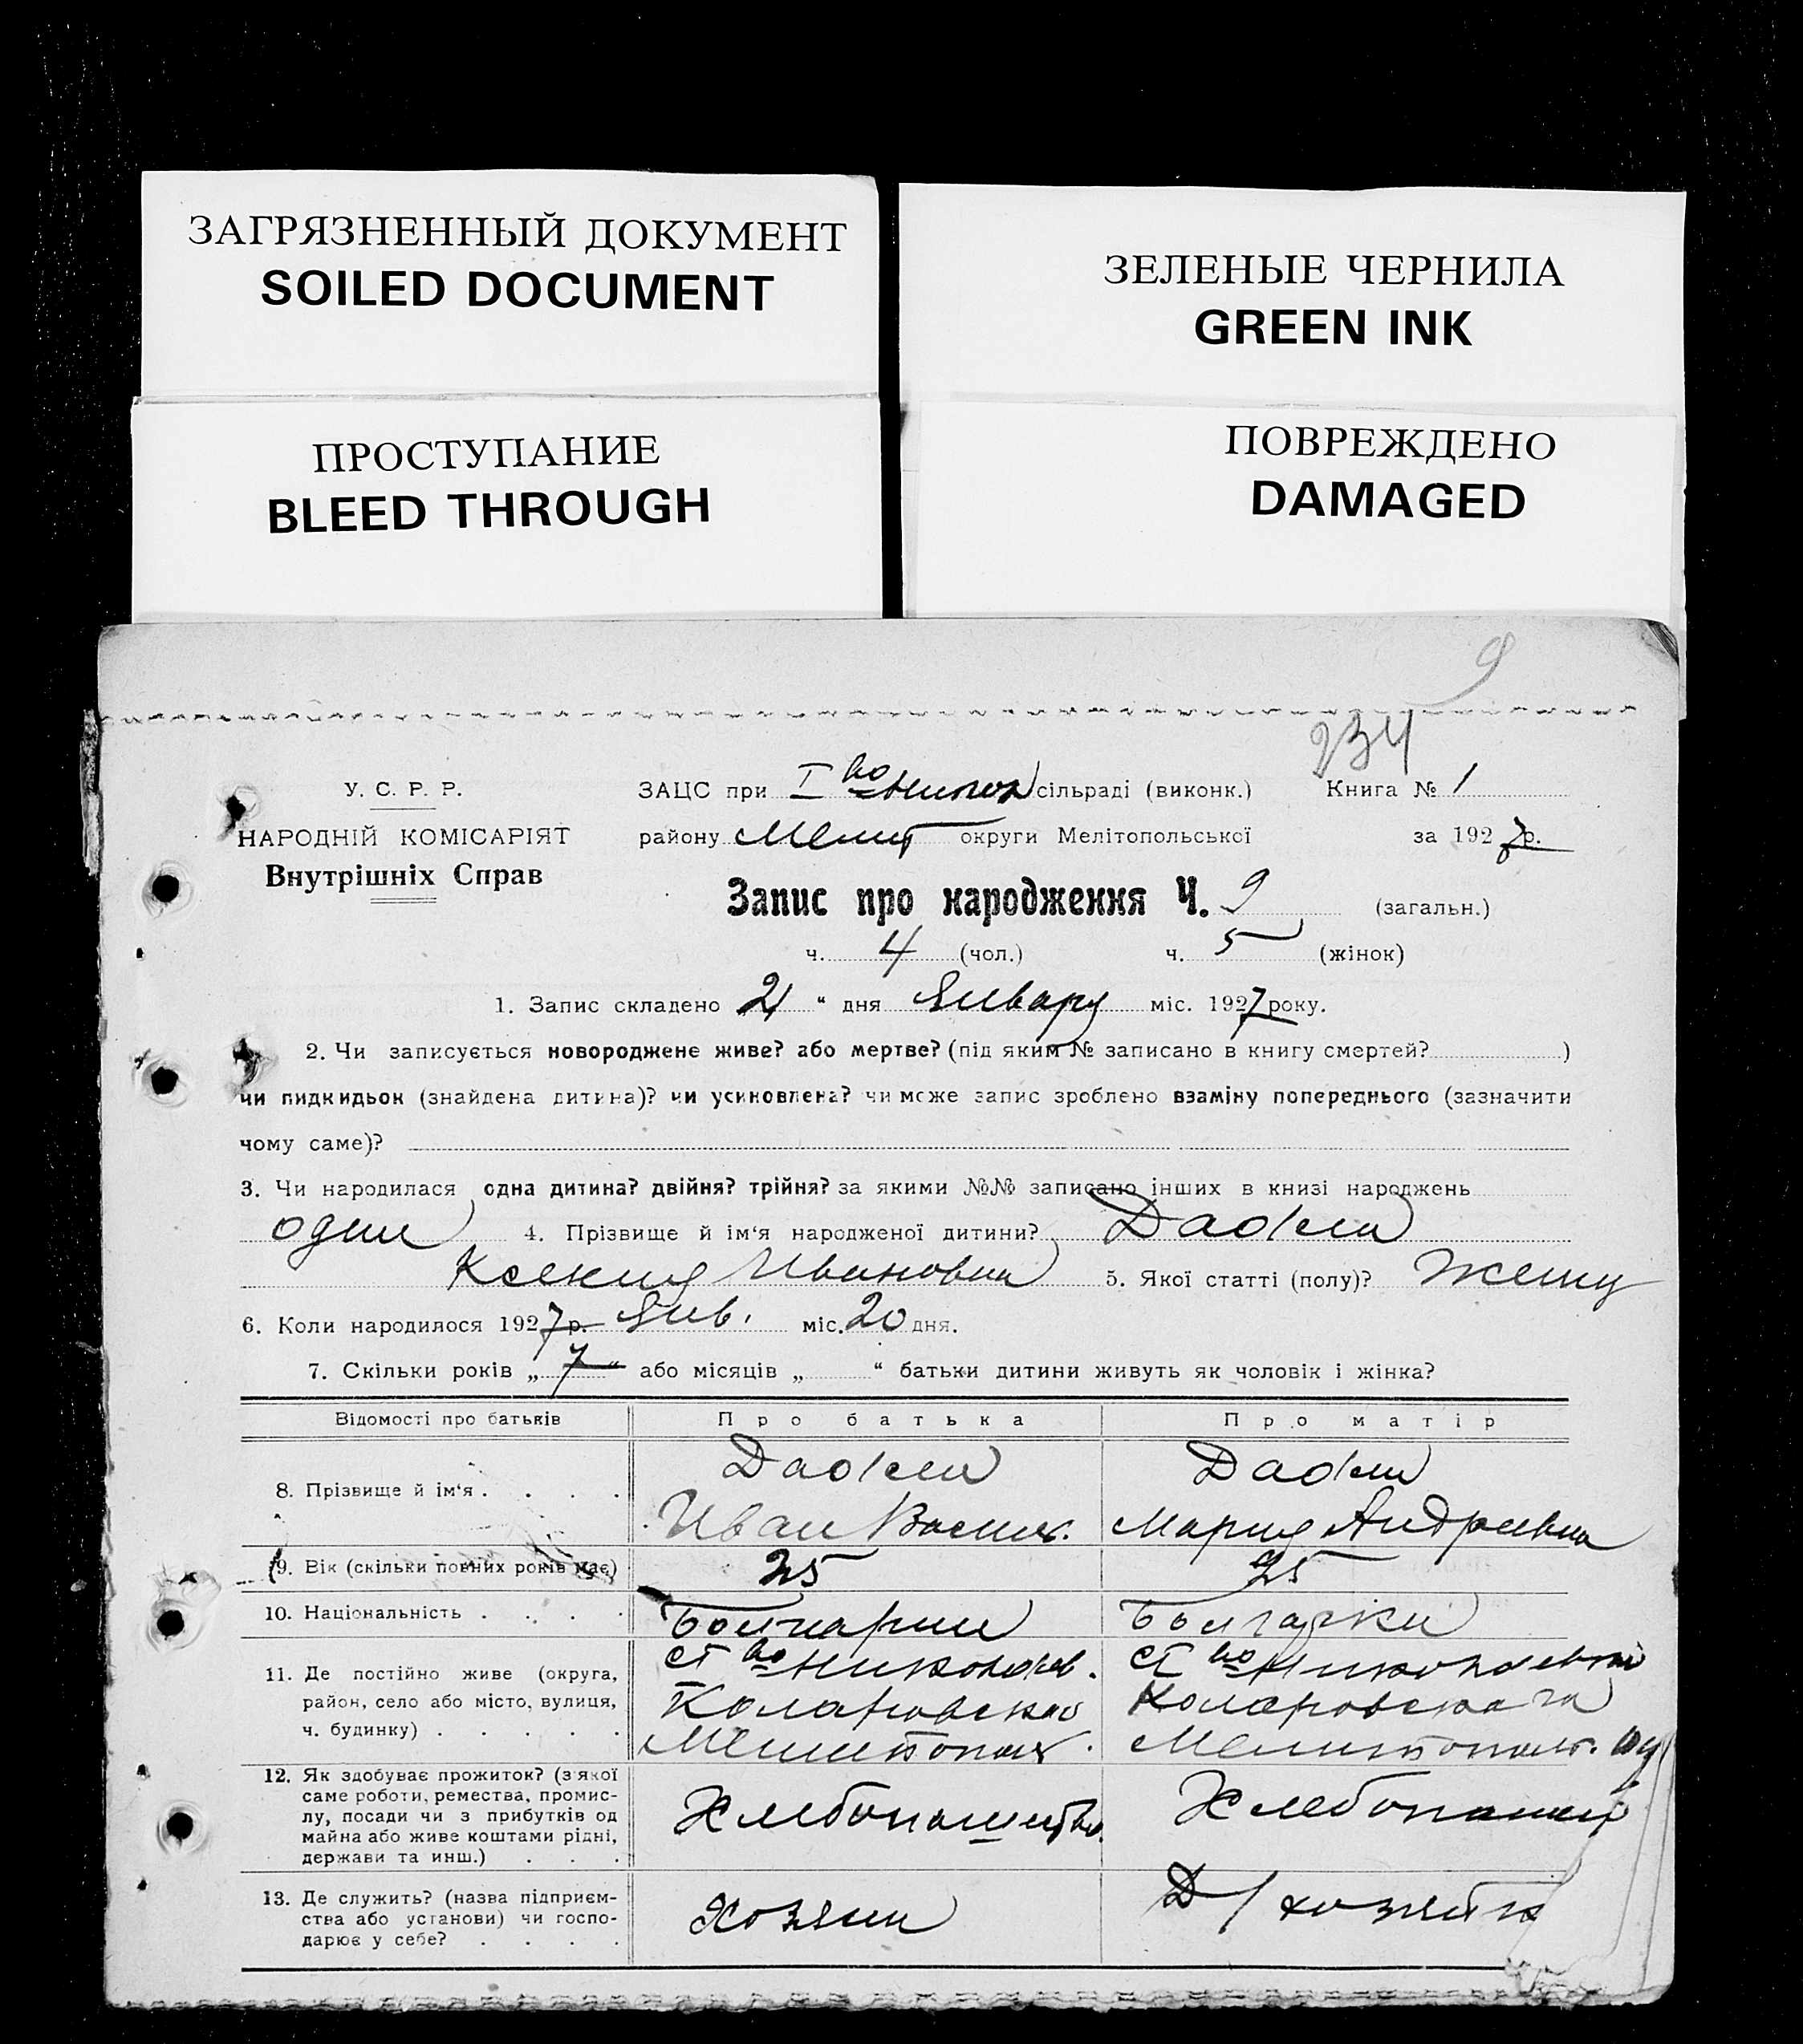 ЗАГРЯЗНЕННЫЙ ДОКУМЕНТ
SOILED DOCUMENT
ЗЕЛЕНЫЕ ЧЕРНИЛА
GREEN INK
ПРОСТУПАНИЕ
BLEED THROUGH
ПОВРЕЖДЕНО
DAMAGED
9
234
У. С. Р. Р.
НАРОДНІЙ КОМІСАРІЯТ
Внутрішніх Справ
ЗАЦС при I во сільраді (виконк.) Книга № 1
району Мелит округи Мелітопольської за 1927 р.
Запис про народження Ч. 9 (загальн.)
ч. 4 (чол.) ч. 5 (жінок)
1. Запис складено 21 “ дня Январу міс. 1927 року.
2. Чи записується новороджене живе? або мертве? (під яким № записано в книгу смертей? )
чи пидкидьок (знайдена дитина)? чи усиновлена? чи може запис зроблено взаміну попереднього (зазначити
чому саме)?
3. Чи народилася одна дитина? двійня? трійня? за якими №№ записано інших в книзі народжень
один 4. Прізвище й ім‘я народженої дитини?
Ксения Ивановна 5. Якої статті (полу)?
6. Коли народилося 1927 р. Янв. міс. 20 дня.
7. Скільки років „ 7 “ або місяців „ “ батьки дитини живуть як чоловік і жінка?
Відомості про батьків
Про батька
Про матір
8. Прізвище й ім‘я . . . .
Иван Васил.
Мария Андреевна
9. Вік (скільки повних років має)
25
25
10. Національність . . . .
Болгарин
Болгарки
11. Де постійно живе (округа,
район, село або місто, вулиця,
ч. будинку) . . . . .
Коларовского
Мелитопол.
Коларовского
Мелитопол.
12. Як здобуває прожиток? (з якої
саме роботи, ремества, промис-
лу, посади чи з прибутків од
майна або живе коштами рідні,
держави та инш.) . . .
Хлебопашество
13. Де служить? (назва підприєм-
ства або установи) чи госпо-
дарює у себе? . . . .
Хозяин
Д/хозяйк